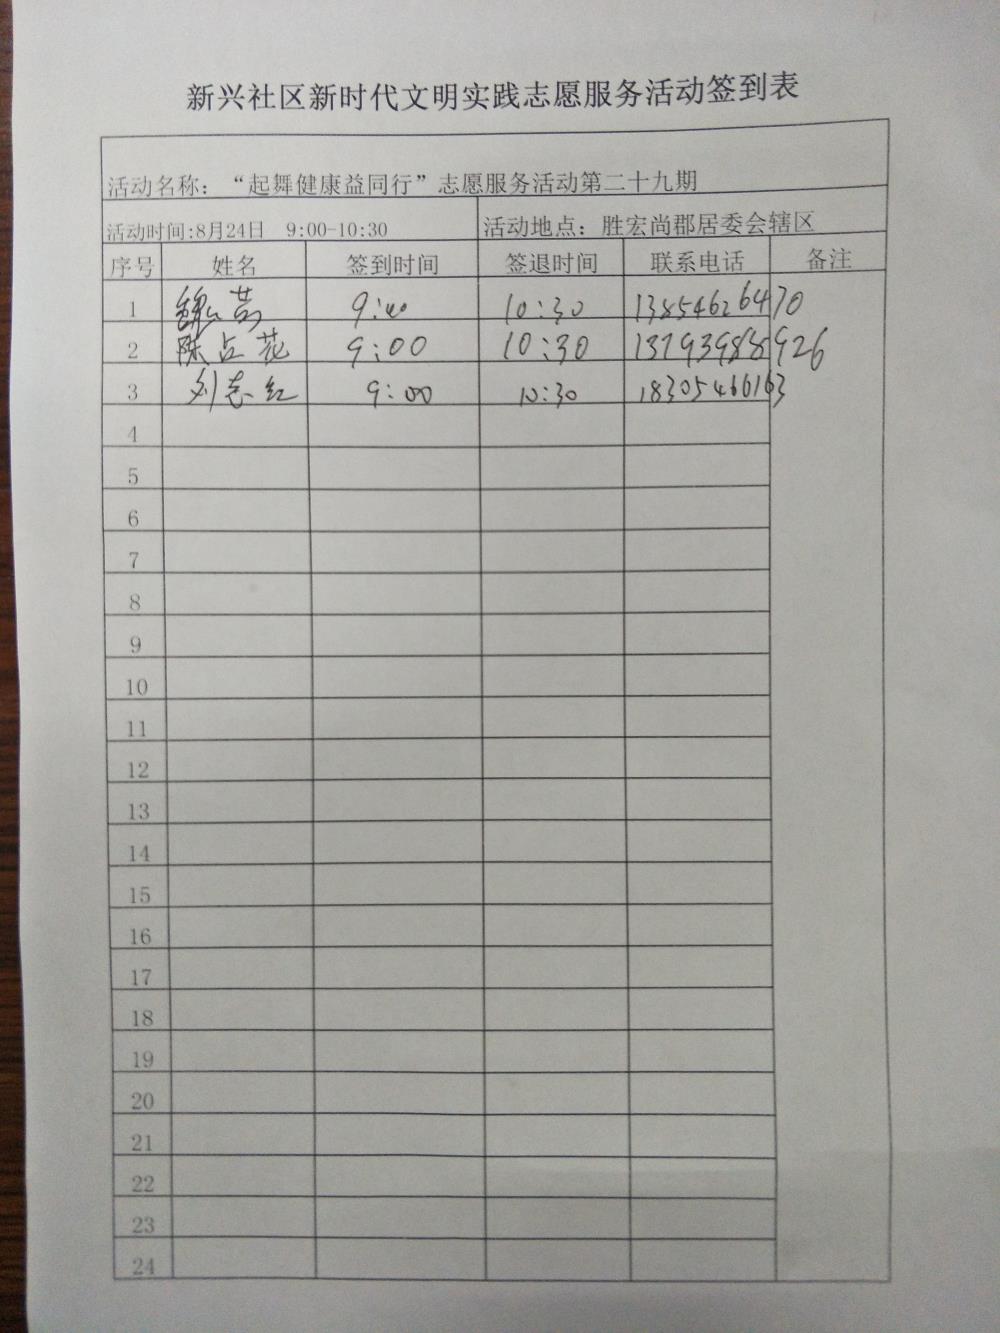 新兴社区新时代文明实践志愿服务活动签到表
活动名称：“起舞健康益同行”志愿服务活动第二十九期
活动时间:8月24日 9:00-10:30 活动地点：胜宏尚郡居委会辖区
序号 姓名 签到时间 签退时间 联系电话 备注
1 魏 9:00 10:30 13854626470
2 陈占花 9:00 10:30 13793988926
3 刘志红 9:00 10:30 18305466163
4
5
6
7
8
9
10
11
12
13
14
15
16
17
18
19
20
21
22
23
24